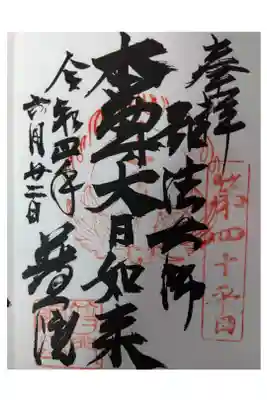 奉拝
第四十
弘法大師
本尊大日如来
令和四年
六月廿二日